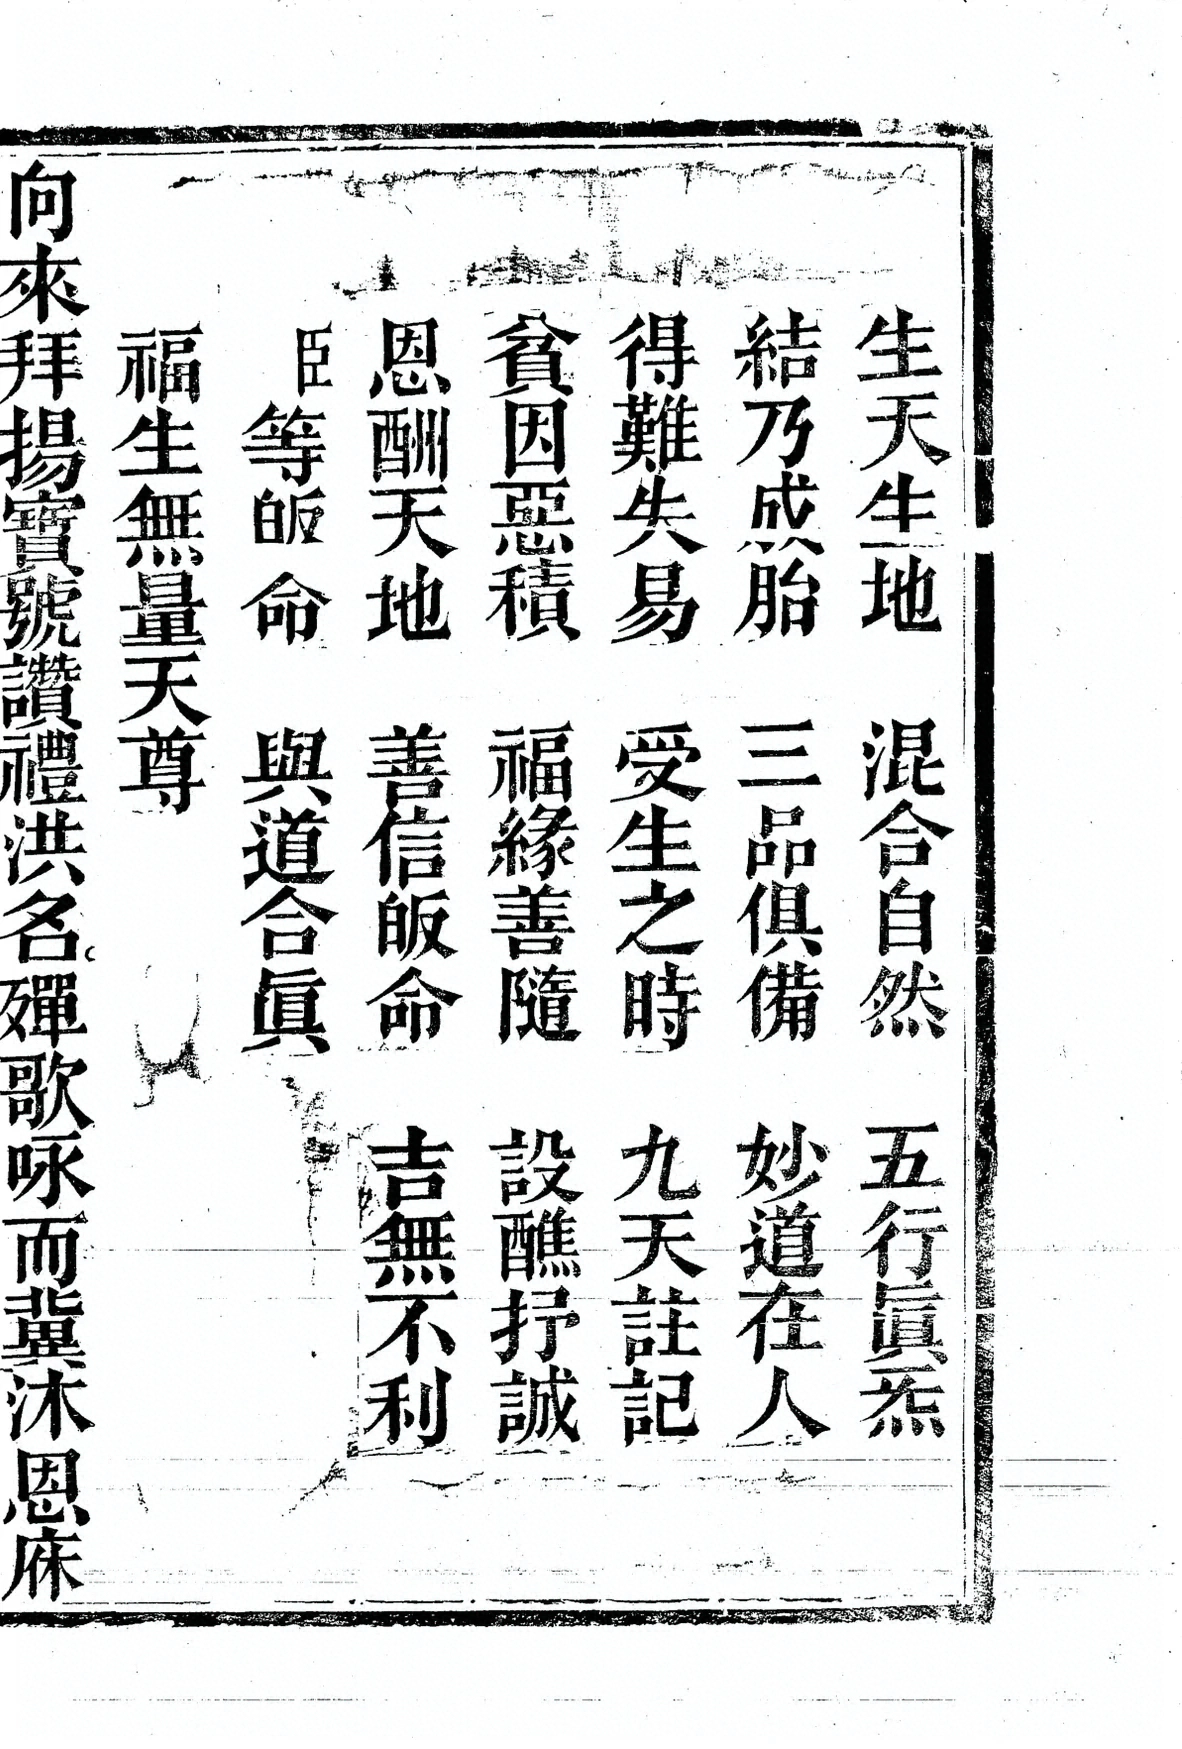 生天生地　混合自然　五行眞炁
結乃成胎　三品俱備　妙道在人
得難失易　受生之時　九天註記
貧因惡積　福緣善隨　設醮抒誠
恩酬天地　善信皈命　吉無不利
臣等皈命　與道合眞
福生無量天尊
向來拜揚寶號讚禮洪名。殫歌咏而冀沐恩庥